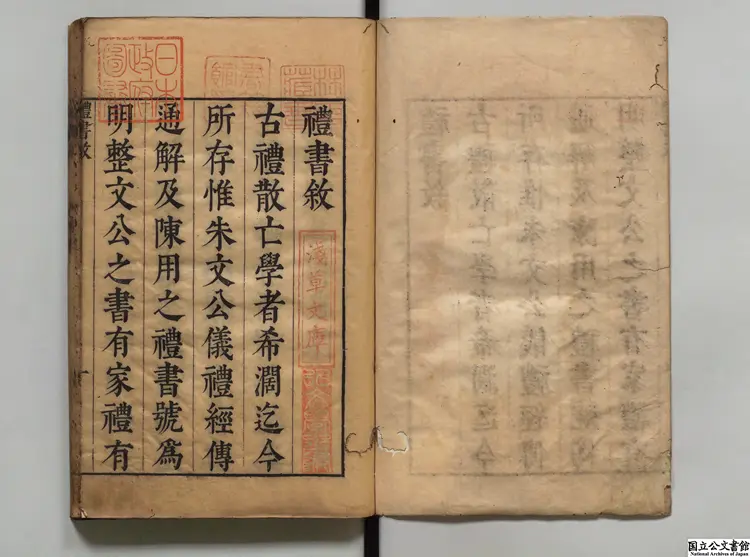 禮書敘
古禮散亡學者希濶迄今
所存惟朱文公儀禮經傳
通解及陳用之禮書號爲
明整文公之書有家禮有
禮書敘
日本
政府
圖書
淺草文庫
国立公文書館
National Archives of Japan